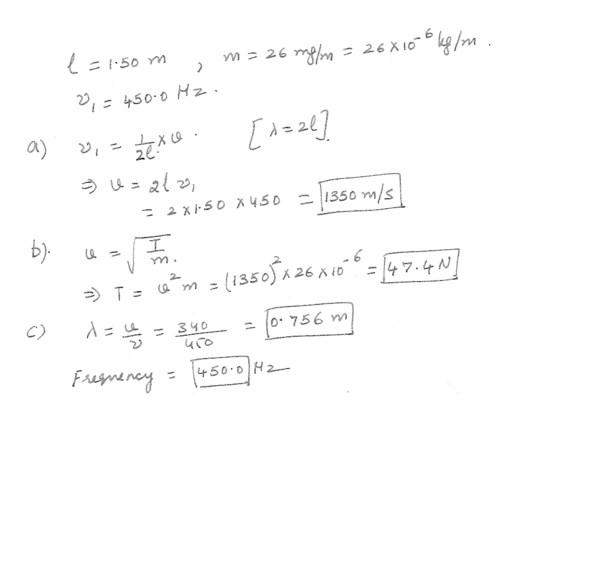 l = 1.50 m , m = 26 mg/m = 26 x 10^-6 kg/m .
ν₁ = 450.0 Hz .
a) ν₁ = 1/2l x v . [λ = 2l]
⇒ v = 2l ν₁
= 2 x 1.50 x 450 = 1350 m/s
b). v = √(T/m) .
⇒ T = v² m = (1350)² x 26 x 10^-6 = 47.4 N
c) λ = v/ν = 340/450 = 0.756 m
Frequency = 450.0 Hz